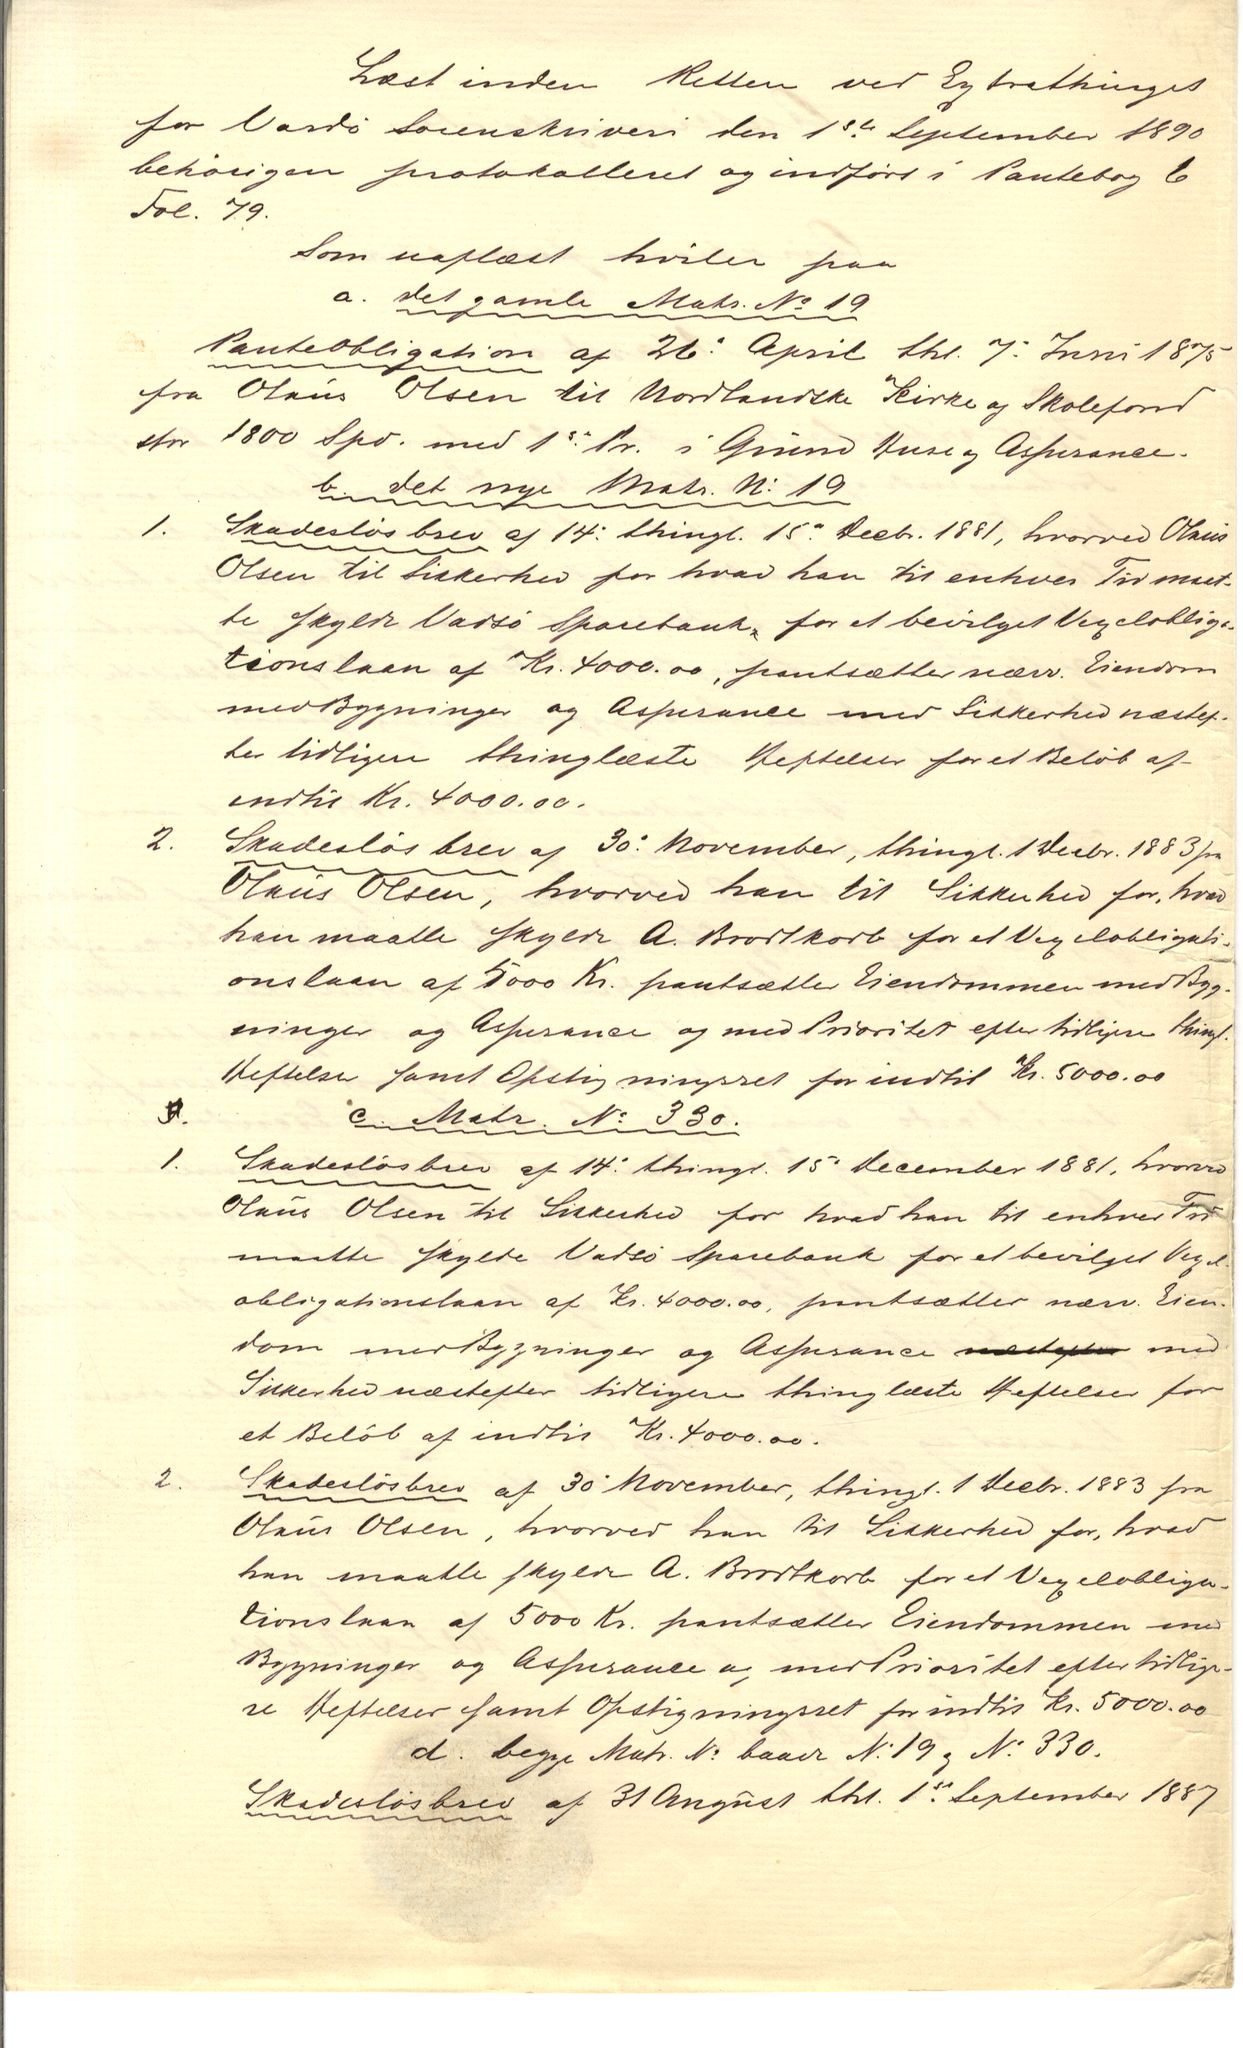 Læst inden Retten ved Extrathinget
for Vardö Sorenskriveri den 1ste September 1890
behörigen protokolleret og indført i Pantebog 6
Fol. 79.
Som uaflæst hviler paa
a. det gamle Matr. No 19
Panteobligation af 26. April thl. 7. Juni 1875
fra Olaus Olsen til Nordlandske Kirke og Skolefond
stor 1800 Spd. med 1ste Pr. i Grund Huse og Assurance.
b. det nye Matr. N: 19
1. Skadesløsbrev af 14. thingl. 15. Decbr. 1881, hvorved Olaus
Olsen til Sikkerhed for hvad han til enhver Tid maat-
te skylde Vadsö Sparebank, for et bevilget Vexelobliga-
tionslaan af Kr. 4000.00, pantsætter nærv. Eiendom
med Bygninger og Assurance med Sikkerhed næstef-
ter tidligere thinglæste Heftelser for et Beløb af
indtil Kr. 4000.00.
2. Skadesløsbrev af 30. November, thingl. 1 Decbr. 1883 fra
Olaus Olsen, hvorved han til Sikkerhed for, hvad
han maatte skylde A. Brodtkorb for et Vexelobligati-
onslaan af 5000 Kr. pantsætter Eiendommen med Byg-
ninger og Assurance og med Prioritet efter tidligere thingl.
Heftelser samt Opstigningsret for indtil Kr. 5000.00
c. Matr. No 330.
1. Skadesløsbrev af 14. thingl. 15. December 1881, hvorved
Olaus Olsen til Sikkerhed for hvad han til enhver Tid
maatte skylde Vadsö Sparebank for et bevilget Vexel-
obligationslaan af Kr. 4000.00, pantsætter nærv. Eien-
dom med Bygninger og Assurance næstefter med
Sikkerhed næstefter tidligere thinglæste Heftelser for
et Beløb af indtil Kr. 4000.00.
2. Skadesløsbrev af 30 November, thingl. 1 Decbr. 1883 fra
Olaus Olsen, hvorved han til Sikkerhed for, hvad
han maatte skylde A. Brodtkorb for et Vexelobliga-
tionslaan af 5000 Kr. pantsætter Eiendommen med
Bygninger og Assurance og med Prioritet efter tidlige-
re Heftelser samt Opstigningsret for indtil Kr. 5000.00
d. begge Matr. No baade N: 19 og N: 330.
Skadesløsbrev af 31 August thl. 1ste September 1887